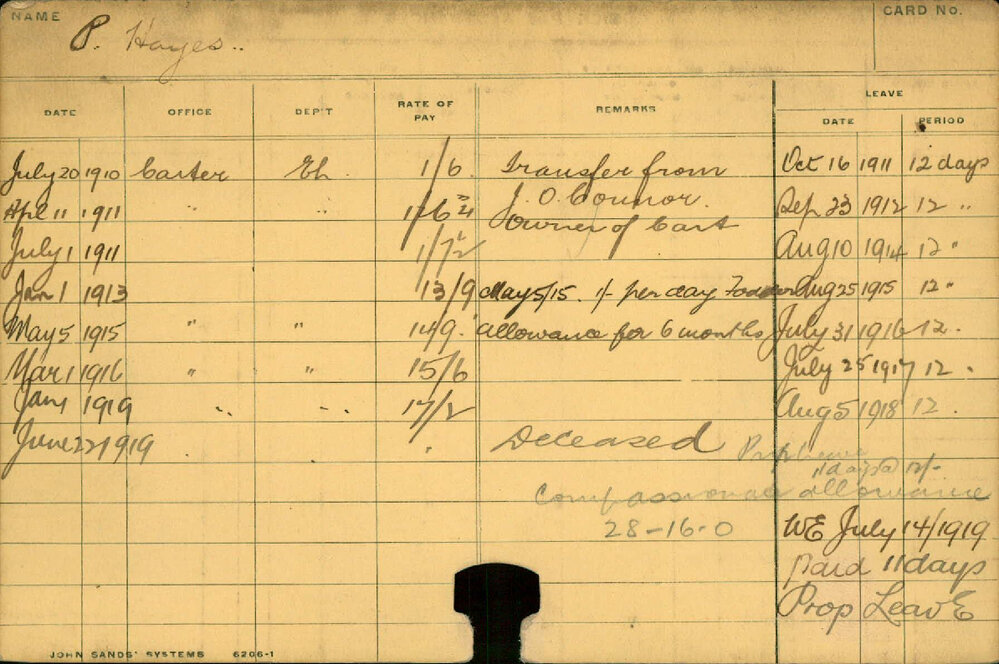 NAME
P. Hayes..
CARD No.
DATE OFFICE DEP'T RATE OF PAY REMARKS LEAVE
DATE PERIOD
July 20 1910 Carter Eh. 1/6 Transfer from Oct 16 1911 12 days
Apl 11 1911 " " J. O. Connor. Sep 23 1912 12 "
July 1 1911 1/7½ Owner of Cart Aug 10 1914 12 "
Jan 1 1913 13/9 May 5/15. 1/- per day Fodder Aug 25 1915 12 "
May 5 1915 " " 14/9. allowance for 6 months July 31 1916 12.
Mar 1 1916 " " 15/6 July 25 1917 12.
Jan 1 1919 " " 17/2 Aug 5 1918 12.
June 22 1919 Deceased
11 days @ 12/-
Compassionate allowance
28-16-0 WE July 14/1919
Paid 11 days
Prop Leave
JOHN SANDS' SYSTEMS 6206-1